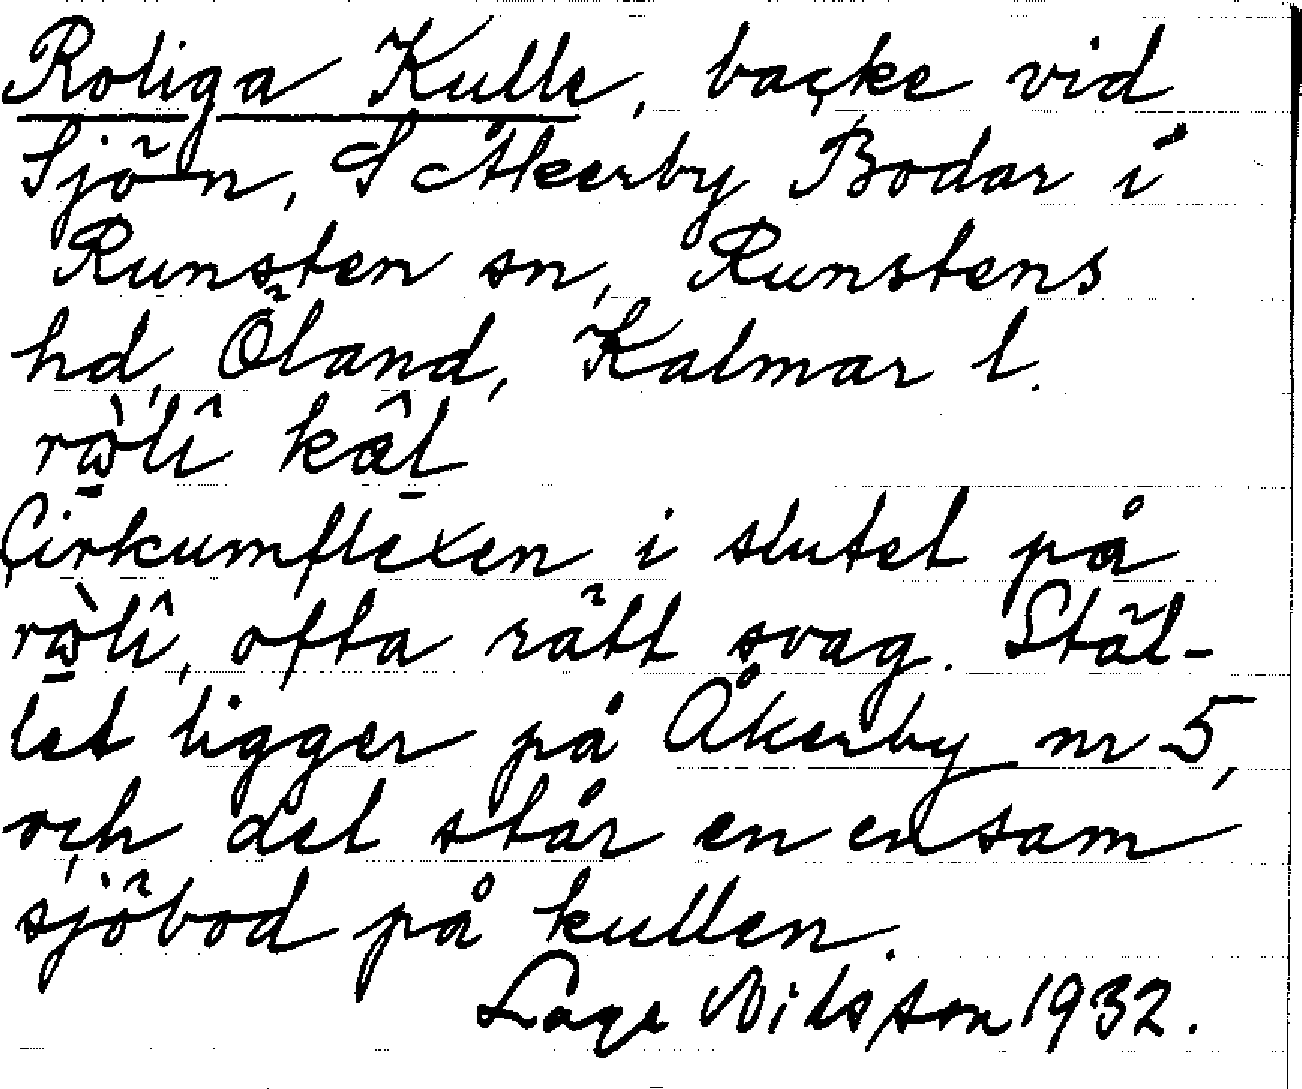 Roliga Kulle, backe vid
Sjön, S Åkerby Bodar i
Runsten sn, Runstens
hd, Öland, Kalmar l.
ròlî kâl
Cirkumflexen i slutet på
ròlî, ofta rätt svag. Stäl-
let ligger på Åkerby nr 5,
och det står en ensam
sjöbod på kullen.
Lage Nilsson 1932.